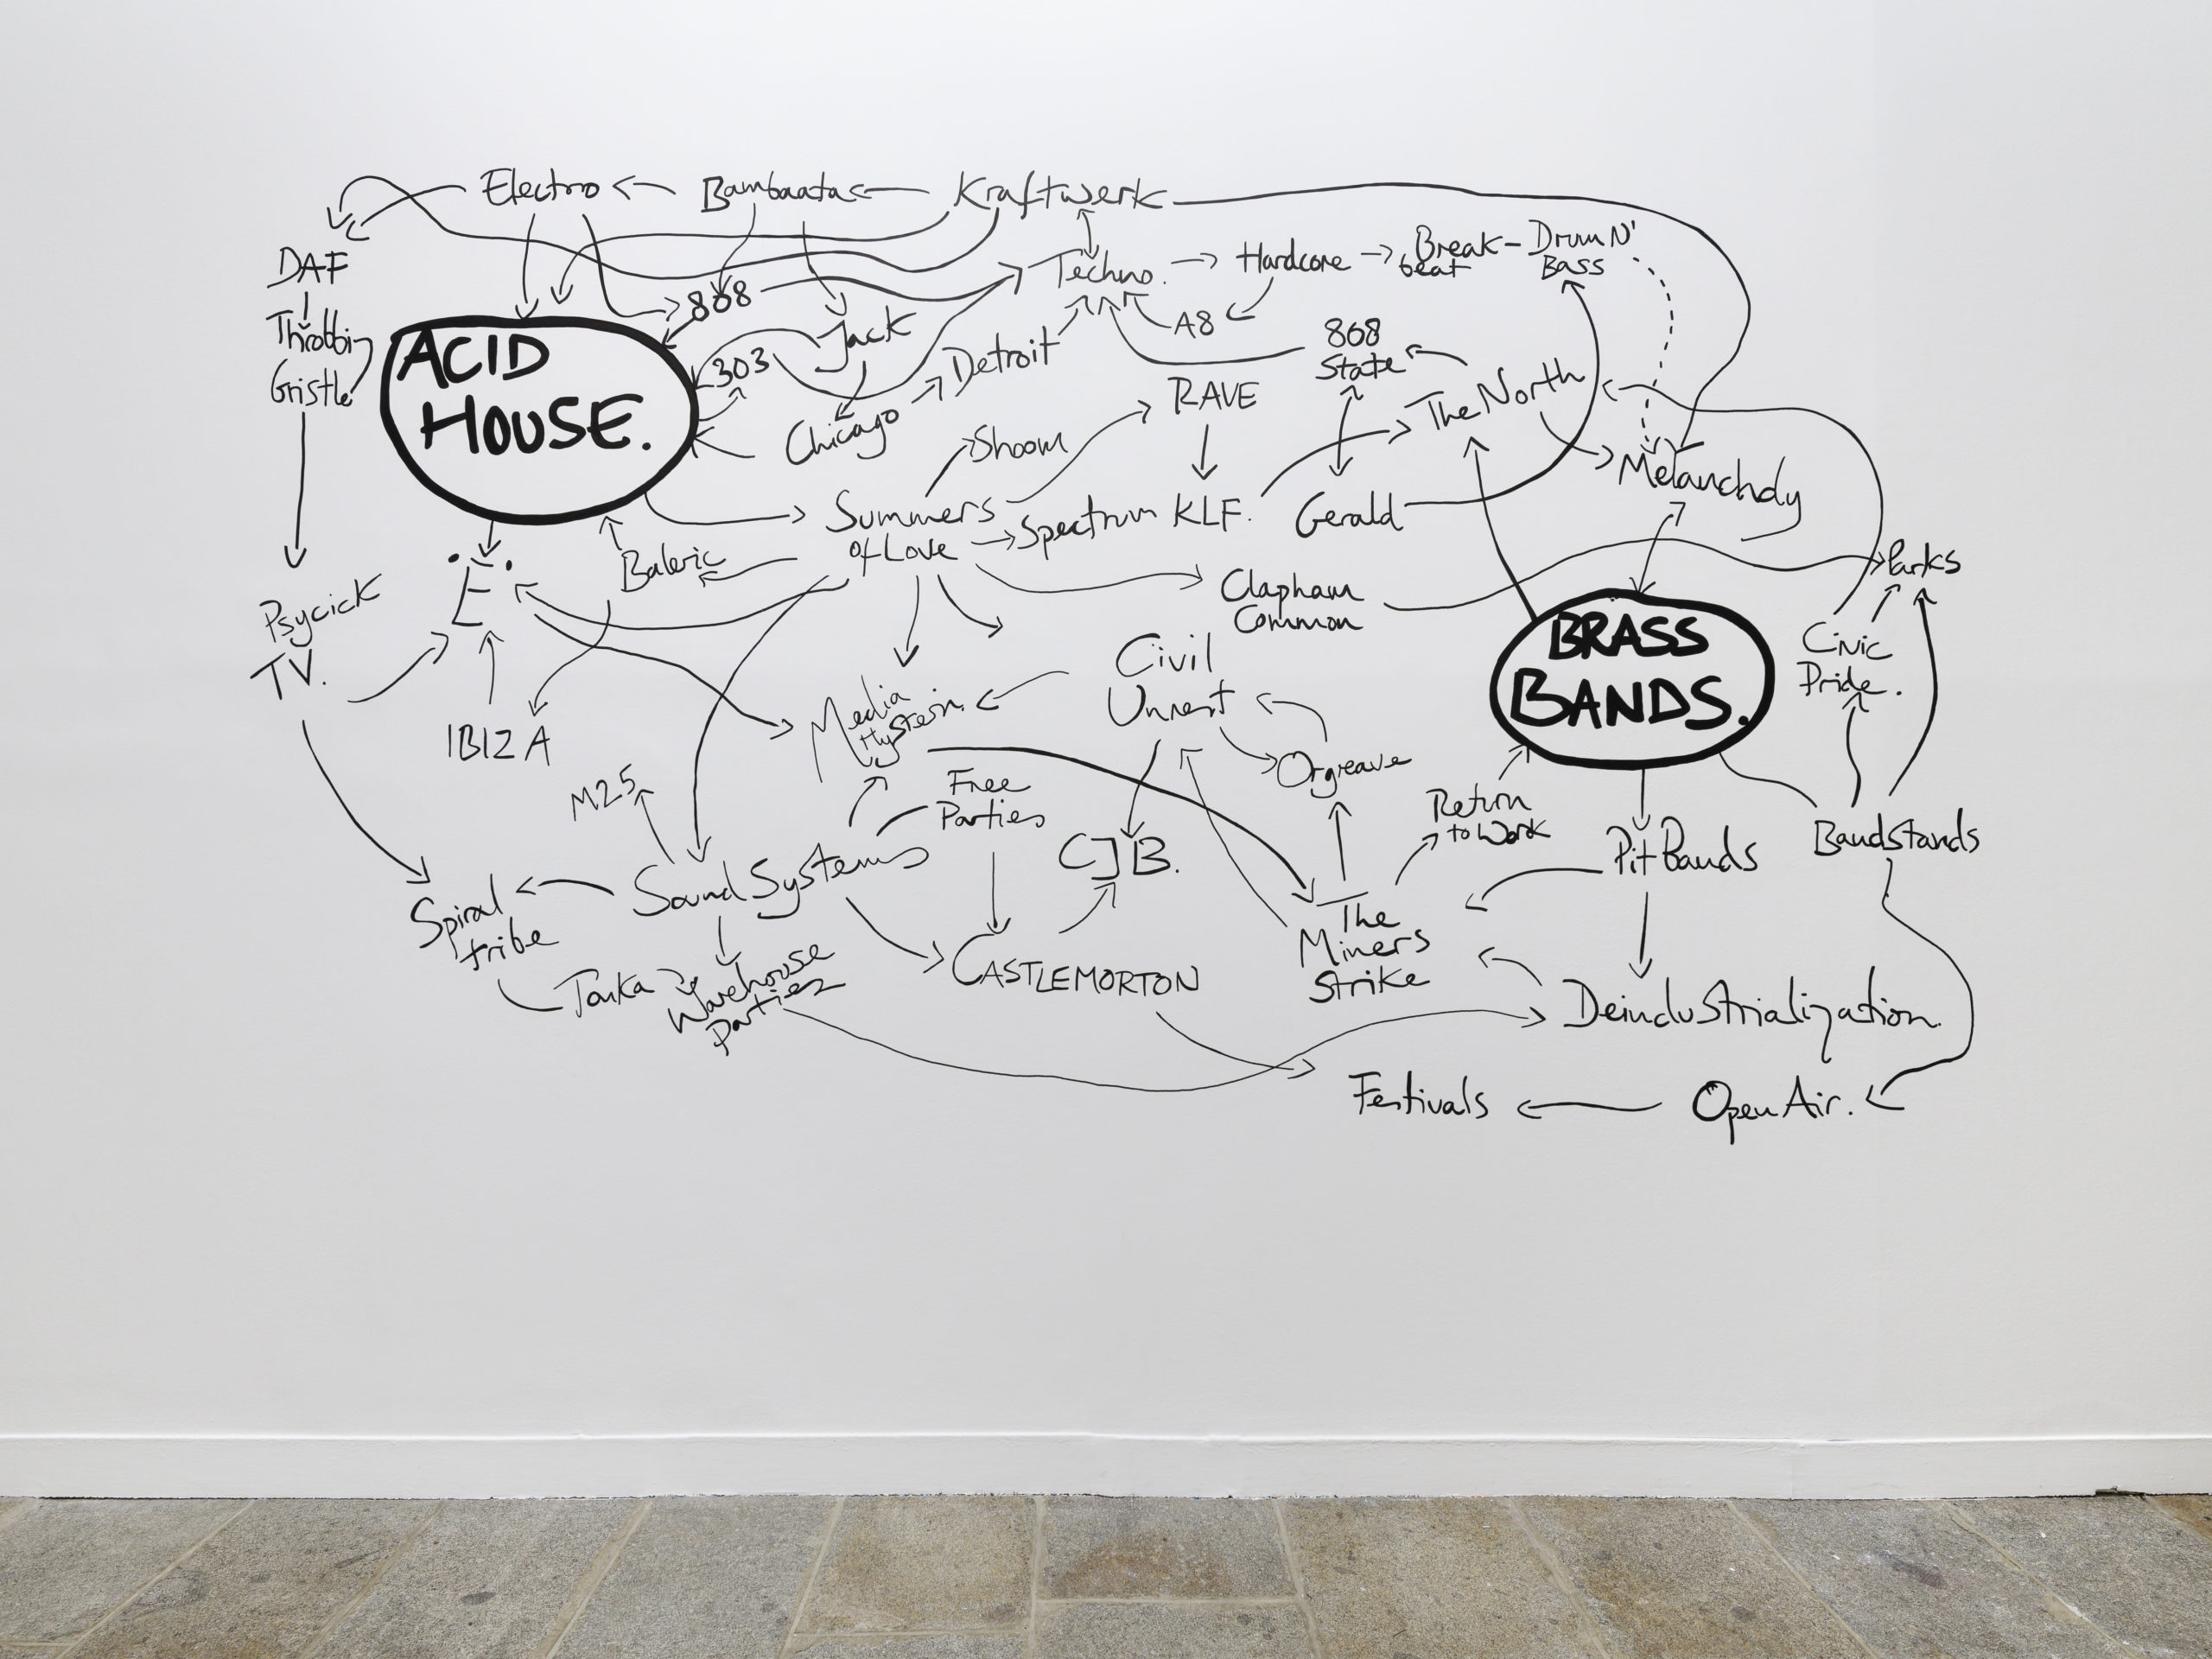 Electro
Bambaata
Kraftwerk
DAF
Throbbing
Gristle
ACID
HOUSE.
808
303
Jack
Chicago
Detroit
Techno.
Hardcore
Break-
beat
Drum N'
Bass
A8
808
State
RAVE
The North
Shoom
Summers
of Love
Spectrum
KLF.
Gerald
Melancholy
Baleric
.E.
Psycick
TV.
IBIZA
Clapham
Common
Parks
Civic
Pride.
BRASS
BANDS.
Civil
Unrest
Media
Hysteria.
Orgreave
M25
Free
Parties
CJB.
Return
to Work
Pit Bands
Bandstands
Sound Systems
Spiral
tribe
Tonka
Warehouse
Parties
CASTLEMORTON
The
Miners
Strike
Deindustrialization
Festivals
Open Air.